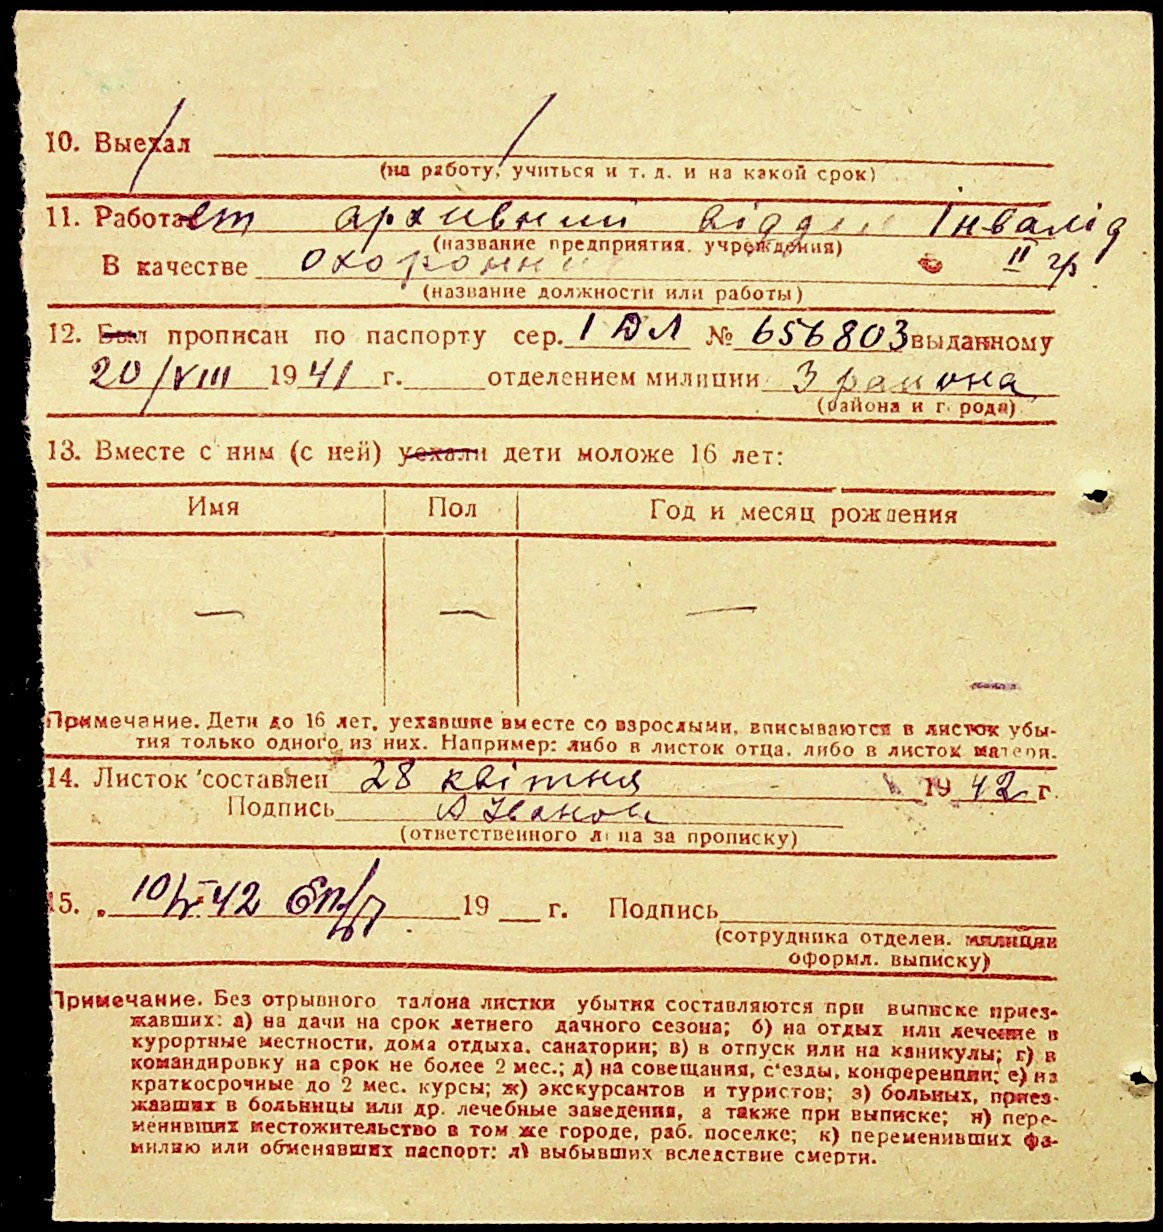 10. Выехал
(на работу, учиться и т. д. и на какой срок)
11. Работает архивний відділ Інвалід
(название предприятия, учреждения)
В качестве охоронник ІІ гр
(название должности или работы)
12. Был прописан по паспорту сер. І ДЛ № 656803 выданному
20/VIII 1941 г. отделением милиции 3 района
(района и города)
13. Вместе с ним (с ней) уехали дети моложе 16 лет:
Имя Пол Год и месяц рождения
— — —
Примечание. Дети до 16 лет, уехавшие вместе со взрослыми, вписываются в листок убы-
тия только одного из них. Например: либо в листок отца, либо в листок матери.
14. Листок составлен 28 квітня 1942 г.
Подпись
(ответственного лица за прописку)
15. 10/V 42 19 г. Подпись
(сотрудника отделен. милиции
оформл. выписку)
Примечание. Без отрывного талона листки убытия составляются при выписке приез-
жавших: а) на дачи на срок летнего дачного сезона; б) на отдых или лечение в
курортные местности, дома отдыха, санатории; в) в отпуск или на каникулы; г) в
командировку на срок не более 2 мес.; д) на совещания, с'езды, конференции; е) на
краткосрочные до 2 мес. курсы; ж) экскурсантов и туристов; з) больных, приез-
жавших в больницы или др. лечебные заведения, а также при выписке; и) пере-
менивших местожительство в том же городе, раб. поселке; к) переменивших фа-
милию или обменявших паспорт; л) выбывших вследствие смерти.